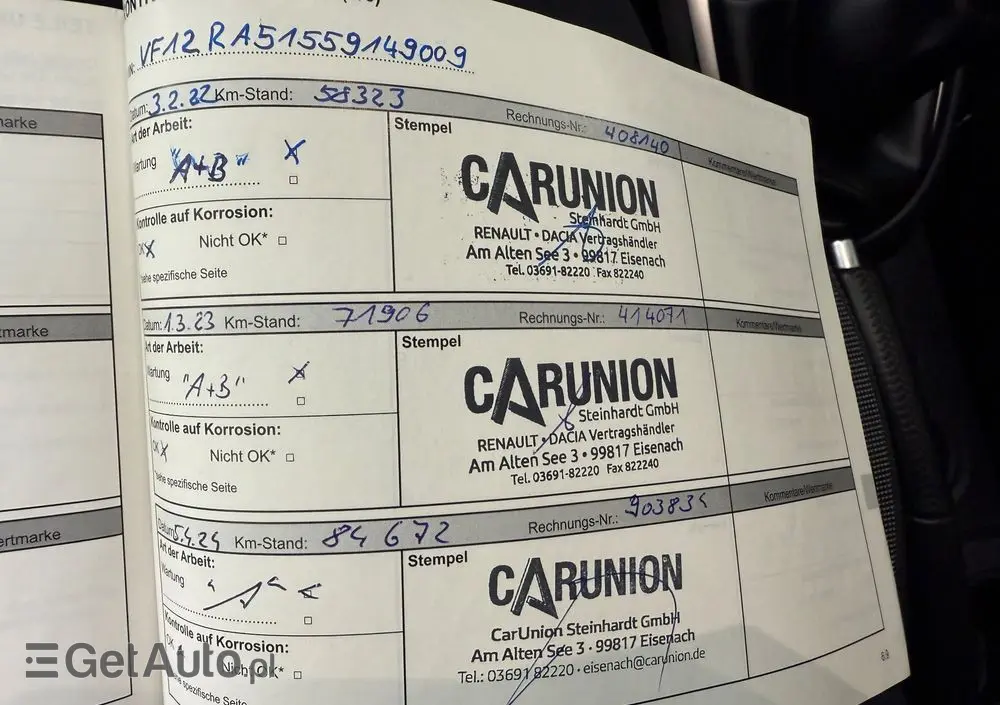 VF12RA51559149009
arke
Datum: 3.2.22 Km-Stand: 58323 Rechnungs-Nr.: 408140 Kommentare/Wertmarke
Art der Arbeit: Stempel
Wartung "A+B" X
CARUNION
Steinhardt GmbH
RENAULT • DACIA Vertragshändler
Am Alten See 3 • 99817 Eisenach
Tel. 03691-82220 Fax 822240
Kontrolle auf Korrosion:
OK X Nicht OK*
siehe spezifische Seite
tmarke
Datum: 1.3.23 Km-Stand: 71906 Rechnungs-Nr.: 414071 Kommentare/Wertmarke
Art der Arbeit: Stempel
Wartung "A+B" X
CARUNION
Steinhardt GmbH
RENAULT • DACIA Vertragshändler
Am Alten See 3 • 99817 Eisenach
Tel. 03691-82220 Fax 822240
Kontrolle auf Korrosion:
OK X Nicht OK*
siehe spezifische Seite
ertmarke
Datum: 5.4.24 Km-Stand: 84 672 Rechnungs-Nr.: 903834 Kommentare/Wertmarke
Art der Arbeit: Stempel
Wartung
CARUNION
CarUnion Steinhardt GmbH
Am Alten See 3 • 99817 Eisenach
Tel.: 03691 82220 • eisenach@carunion.de
Kontrolle auf Korrosion:
OK Nicht OK*
siehe spezifische Seite
GetAuto.pl